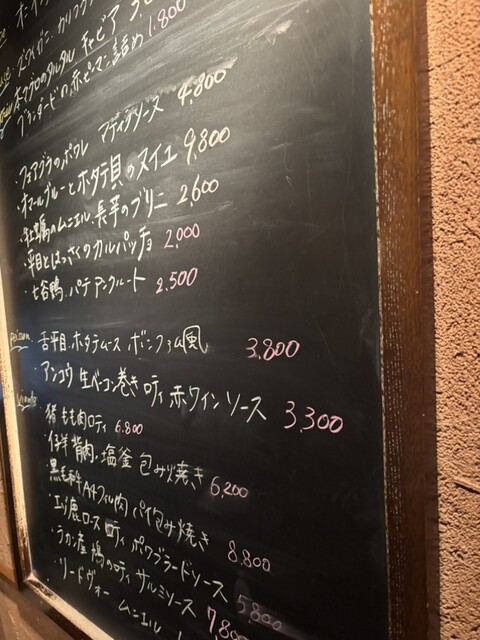 ズワイガニ カリフラワー
本マグロのタルタル キャビア
ブランダードの赤ピーマン詰め 1,800
・フォアグラのポワレ マディラソース 4,800
・オマールブルーとホタテ貝のヌイユ 9,800
・牡蠣のムニエル 長芋のブリニ 2,600
・平目とはっさくのカルパッチョ 2,000
・七谷鴨 パテアンクルート 2,500
poisson
・舌平目・ホタテムース ボンファム風 3,800
・アンコウ 生ベーコン巻き ロティ 赤ワインソース 3,300
viande
・猪 もも肉ロティ 6,800
・仔羊 背肉・塩釜 包み焼き 6,200
・黒毛和牛A4フィレ肉 パイ包み焼き 8,800
・エゾ鹿ロース ロティ ポワヴラードソース 5,800
・ラカン産 鳩のロティ サルミソース 7,800
・リードヴォー ムニエル